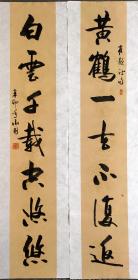 黄鶴一去不復返
白雲千載空悠悠
辛卯